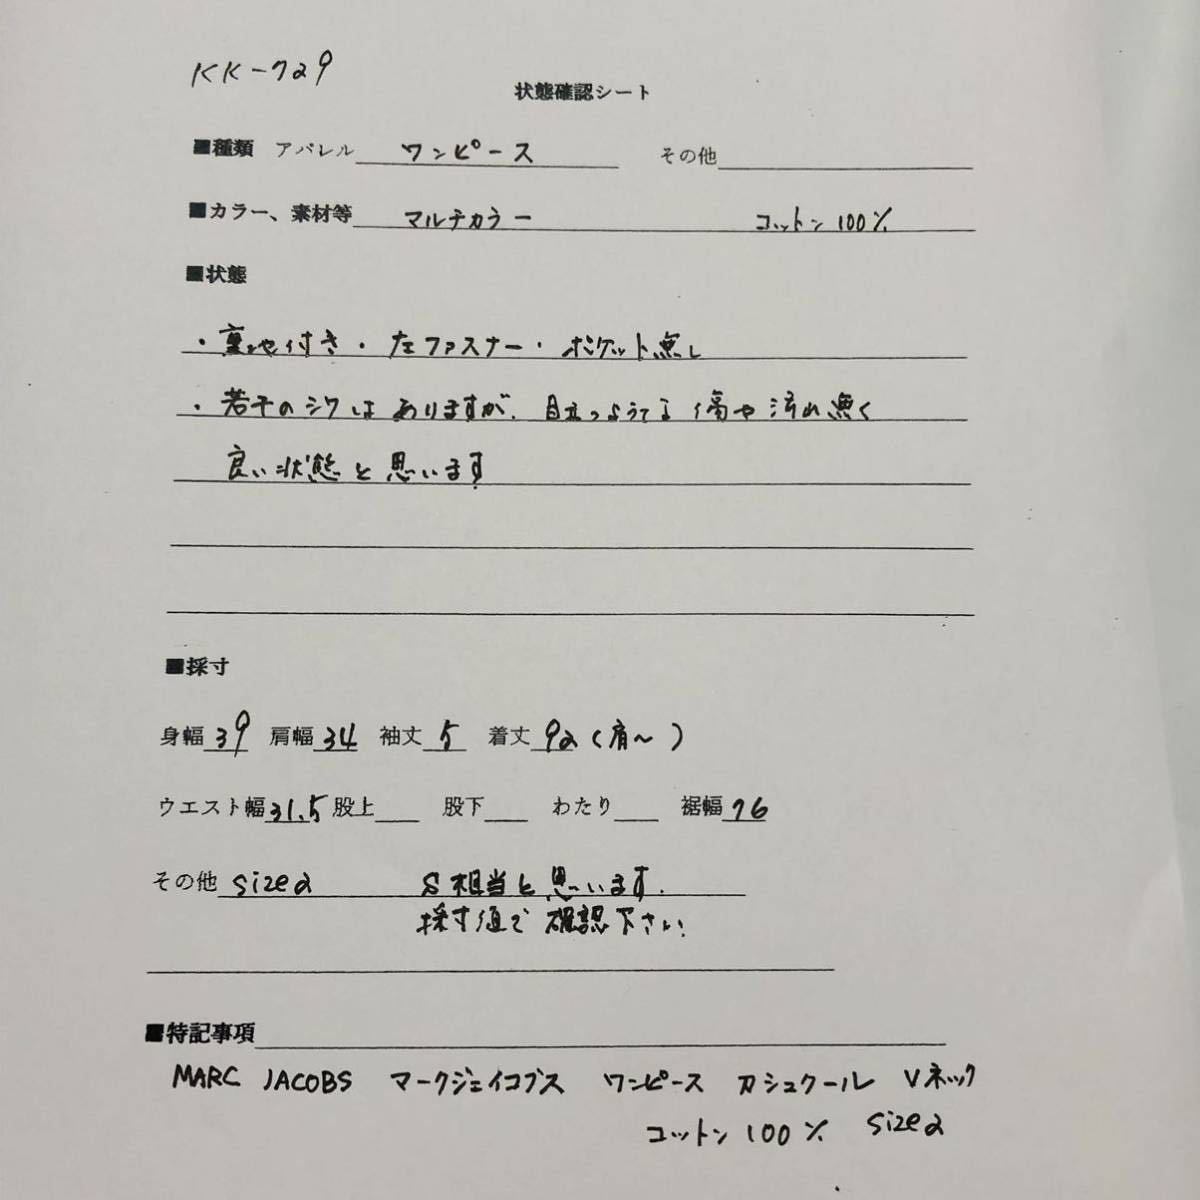 KK-729
状態確認シート
■種類 アパレル ワンピース その他
■カラー、素材等 マルチカラー コットン100%
■状態
・裏地付き・左ファスナー・ポケット無し
・若干のシワはありますが、目立つような傷や汚れ無く
良い状態と思います
■採寸
身幅 39 肩幅 34 袖丈 5 着丈 92(肩〜)
ウエスト幅 31.5 股上 股下 わたり 裾幅 76
その他 size2 S相当と思います.
採寸値で確認下さい.
■特記事項
MARC JACOBS マークジェイコブス ワンピース カシュクール Vネック
コットン100% size2